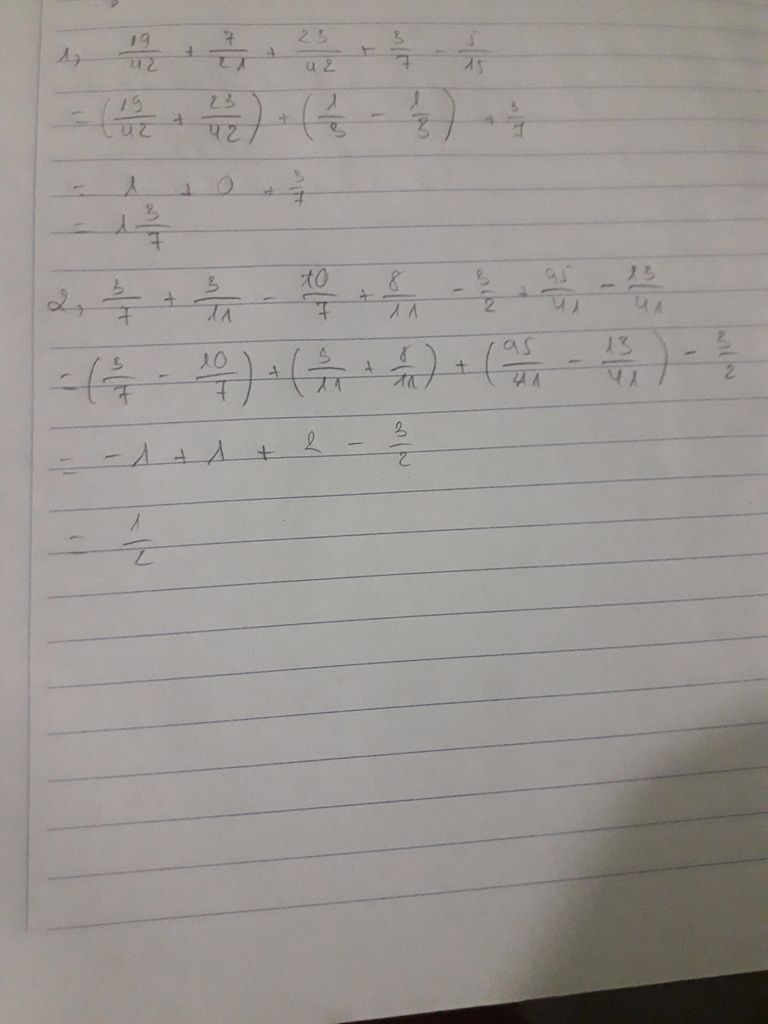 1, 19/42 + 7/21 + 23/42 + 3/7 - 5/15
= (19/42 + 23/42) + (1/3 - 1/3) + 3/7
= 1 + 0 + 3/7
= 1 3/7
2, 3/7 + 3/11 - 10/7 + 8/11 - 3/2 + 95/41 - 13/41
= (3/7 - 10/7) + (3/11 + 8/11) + (95/41 - 13/41) - 3/2
= -1 + 1 + 2 - 3/2
= 1/2